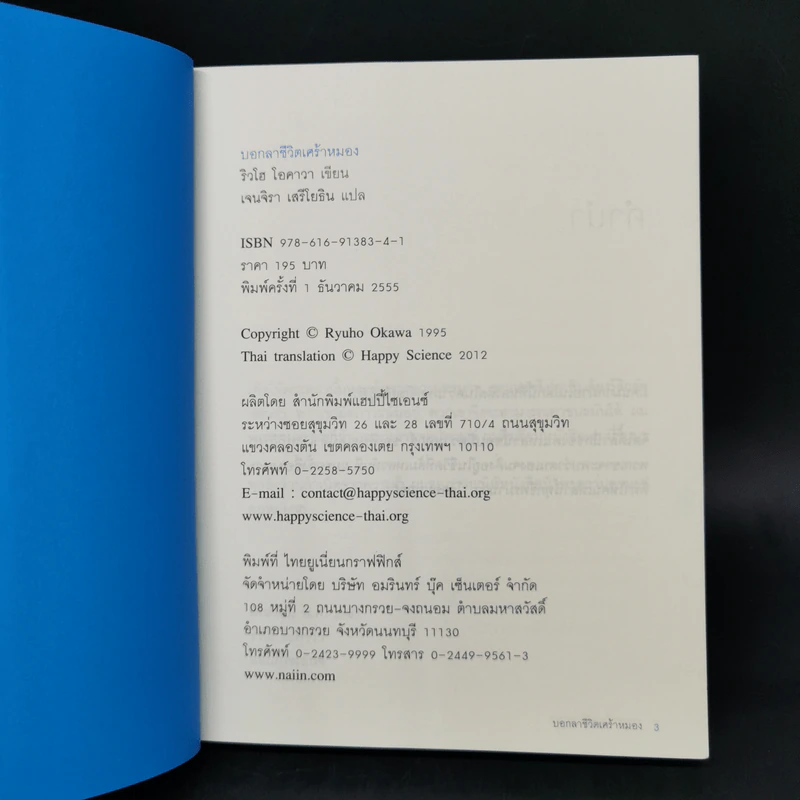 บอกลาชีวิตเศร้าหมอง
ริวโฮ โอคาวา เขียน
เจนจิรา เสรีโยธิน แปล
ISBN 978-616-91383-4-1
ราคา 195 บาท
พิมพ์ครั้งที่ 1 ธันวาคม 2555
Copyright © Ryuho Okawa 1995
Thai translation © Happy Science 2012
ผลิตโดย สำนักพิมพ์แฮปปี้ไซเอนซ์
ระหว่างซอยสุขุมวิท 26 และ 28 เลขที่ 710/4 ถนนสุขุมวิท
แขวงคลองตัน เขตคลองเตย กรุงเทพฯ 10110
โทรศัพท์ 0-2258-5750
E-mail : contact@happyscience-thai.org
www.happyscience-thai.org
พิมพ์ที่ ไทยยูเนี่ยนกราฟฟิกส์
จัดจำหน่ายโดย บริษัท อมรินทร์ บุ๊ค เซ็นเตอร์ จำกัด
108 หมู่ที่ 2 ถนนบางกรวย-จงถนอม ตำบลมหาสวัสดิ์
อำเภอบางกรวย จังหวัดนนทบุรี 11130
โทรศัพท์ 0-2423-9999 โทรสาร 0-2449-9561-3
www.naiin.com
บอกลาชีวิตเศร้าหมอง 3